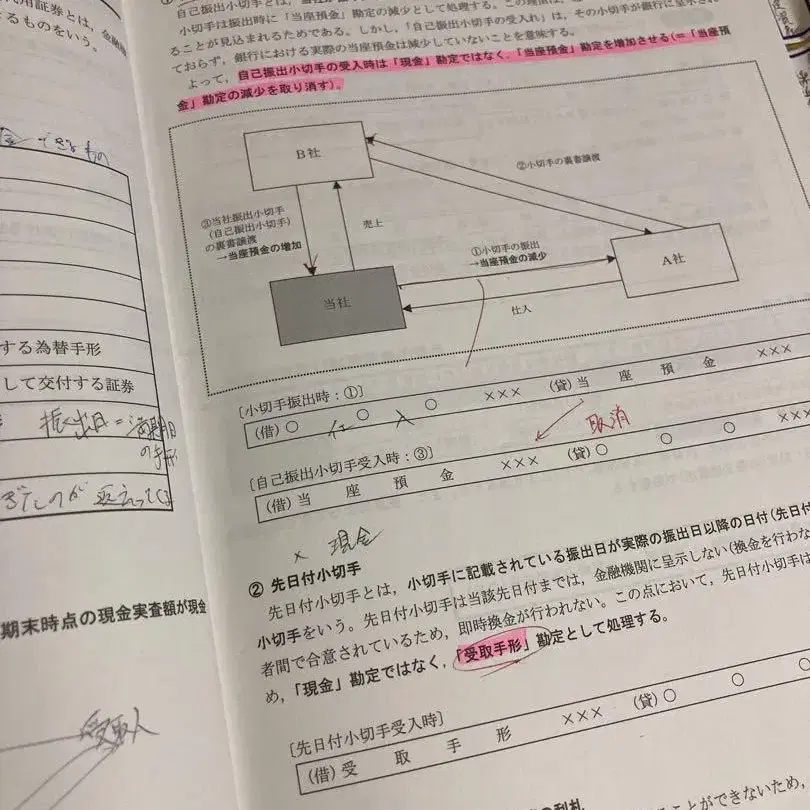 用証券とは，金融
るものをいう。
できるもの
する為替手形
して交付する証券
振出日＝満期日
の手形
期末時点の現金実査額が現金
受取人
小切手は振出時に「当座預金」勘定の減少として処理する。この理由は，
ることが見込まれるためである。しかし，「自己振出小切手の受入れ」は，その小切手が銀行に呈示され
ておらず，銀行における実際の当座預金は減少していないことを意味する。
よって，自己振出小切手の受入時は「現金」勘定ではなく，「当座預金」勘定を増加させる(＝「当座預
金」勘定の減少を取り消す)。
B社
②小切手の裏書譲渡
③当社振出小切手
(自己振出小切手)
の裏書譲渡
→当座預金の増加
売上
①小切手の振出
→当座預金の減少
A社
当社
仕入
[小切手振出時：①]
(借)〇 〇 〇 ××× (貸)当座預金 ×××
仕入
取消
[自己振出小切手受入時：③]
(借)当座預金 ××× (貸)〇 〇 〇 ×××
× 現金
② 先日付小切手
先日付小切手とは，小切手に記載されている振出日が実際の振出日以降の日付(先日付
小切手をいう。先日付小切手は当該先日付までは，金融機関に呈示しない(換金を行わな
者間で合意されているため，即時換金が行われない。この点において，先日付小切手は
め，「現金」勘定ではなく，「受取手形」勘定として処理する。
[先日付小切手受入時]
(借)受取手形 ××× (貸)〇 〇 〇
ることができないため，